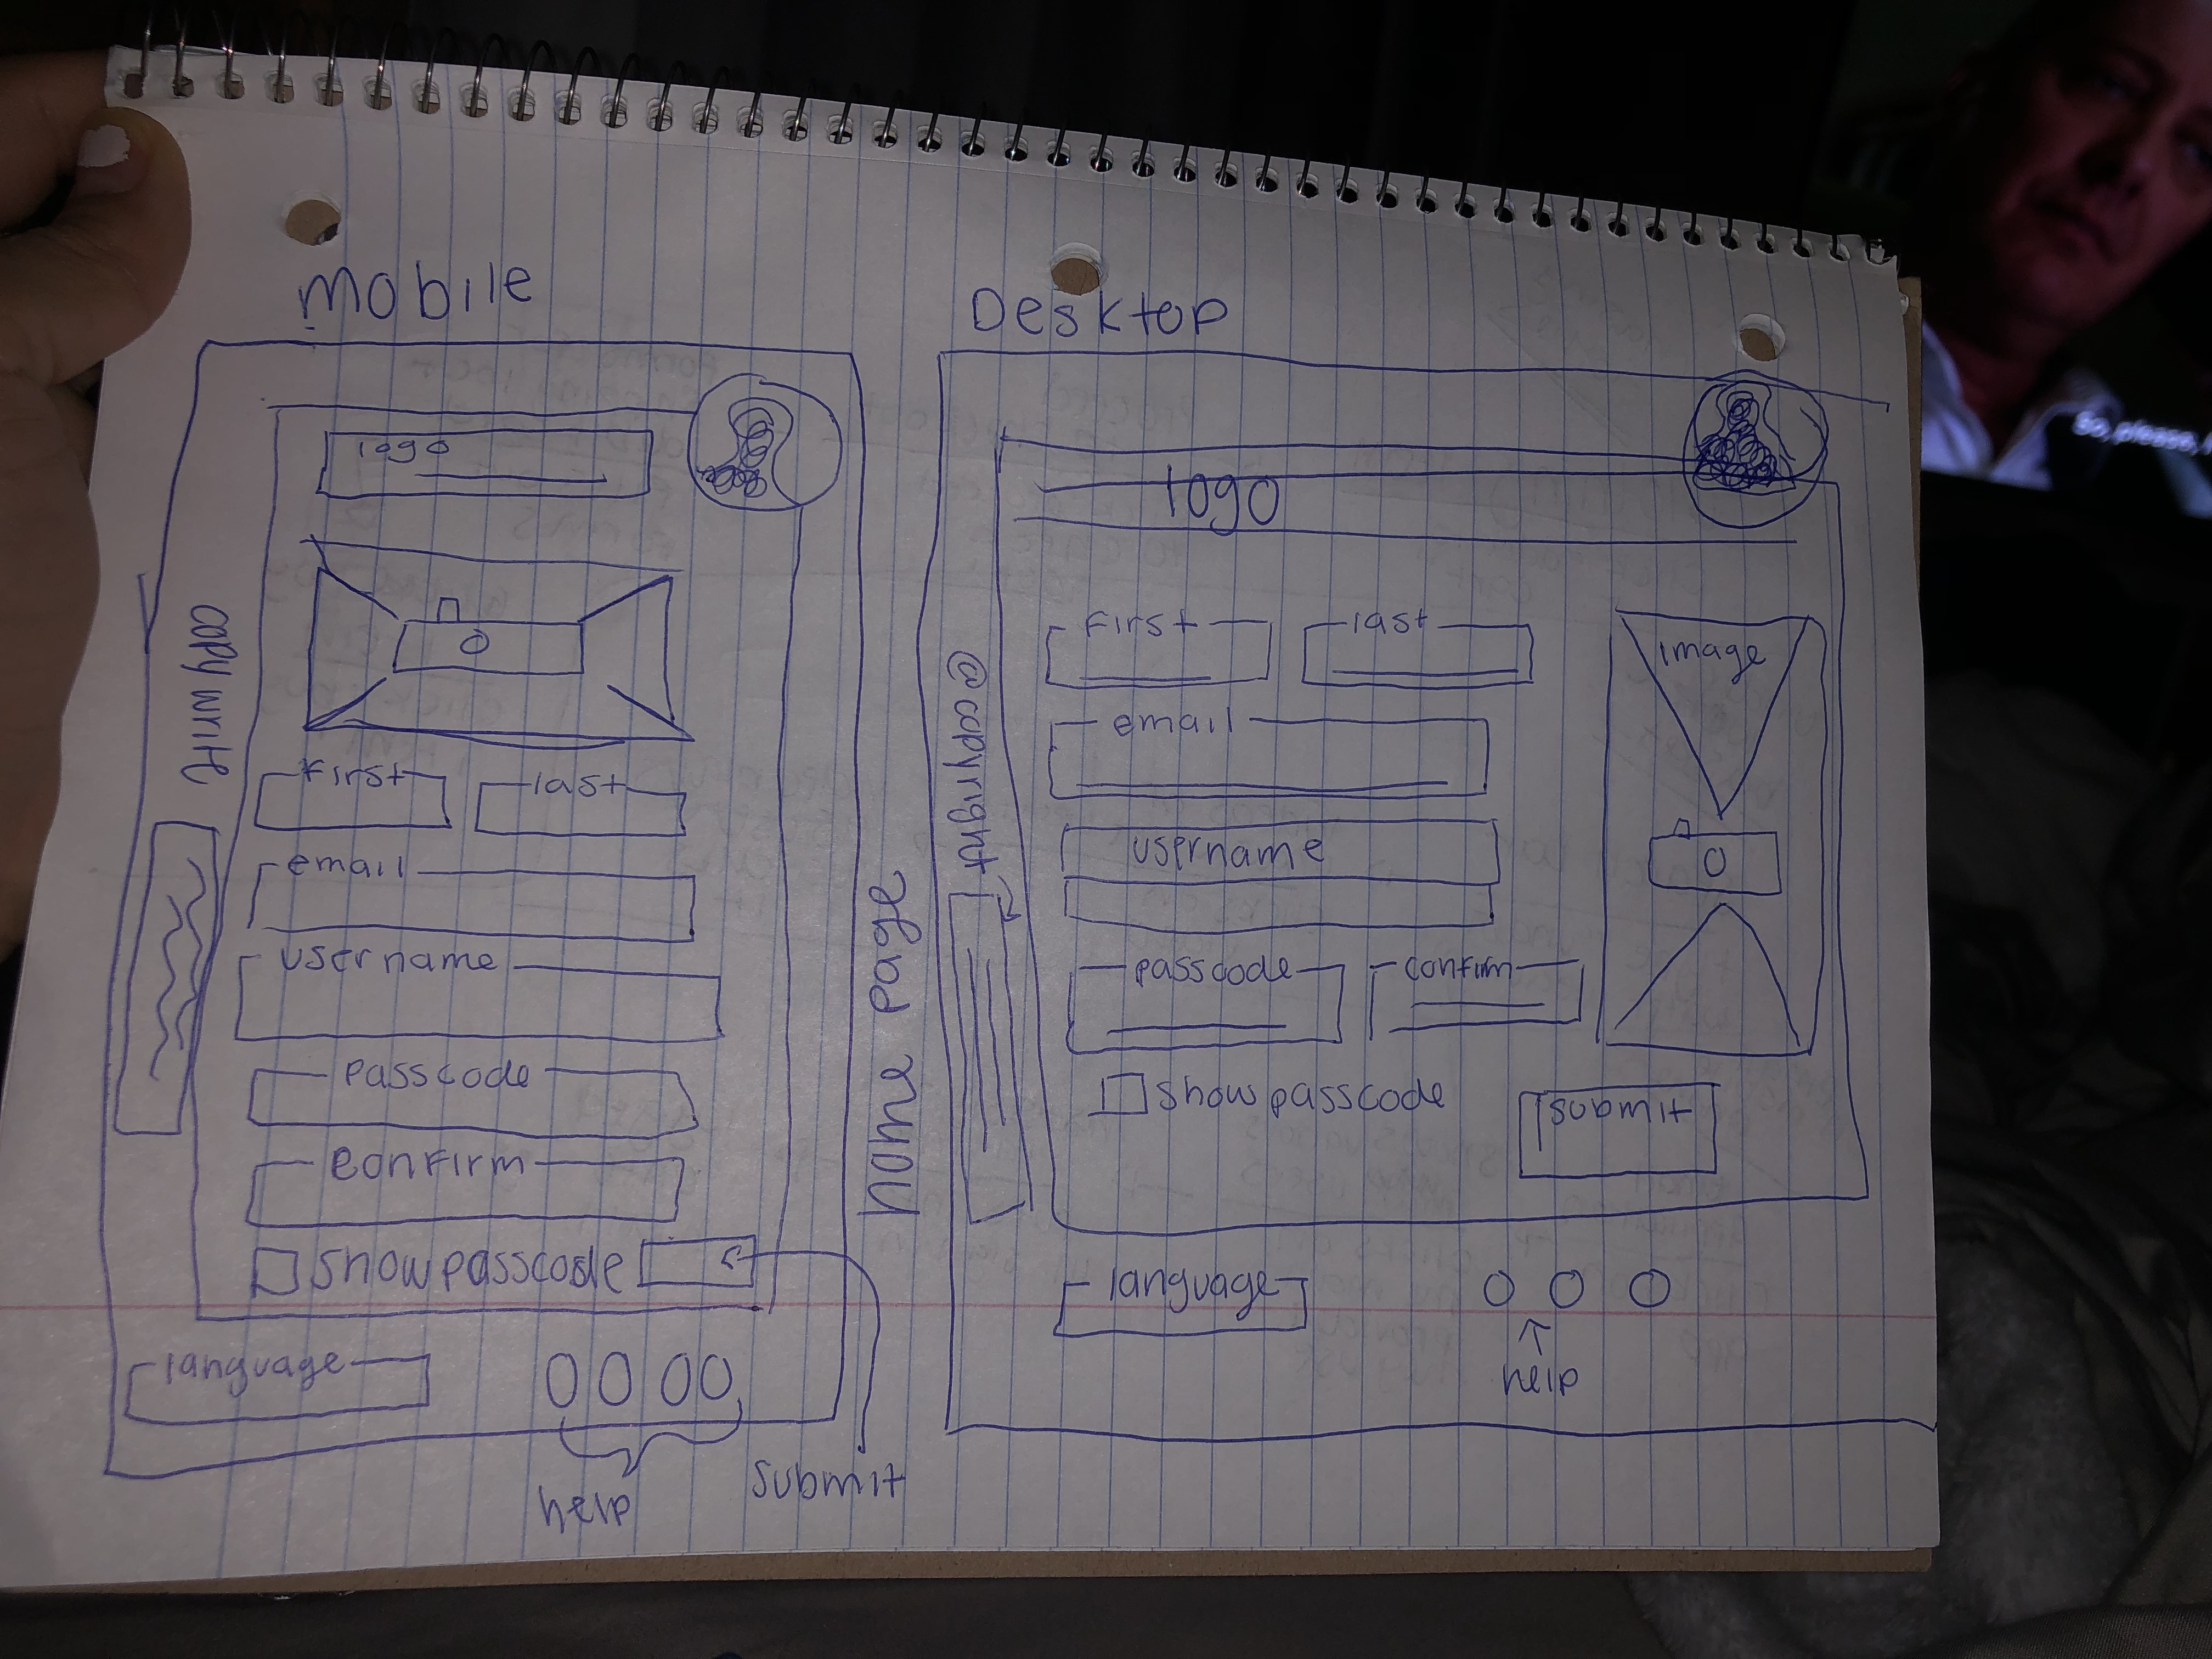 mobile
logo
copywrite
first
last
email
username
passcode
confirm
show passcode
language
help
submit
home page
Desktop
logo
@copyright
first
last
image
email
username
passcode
confirm
show passcode
submit
language
help
So, please, I